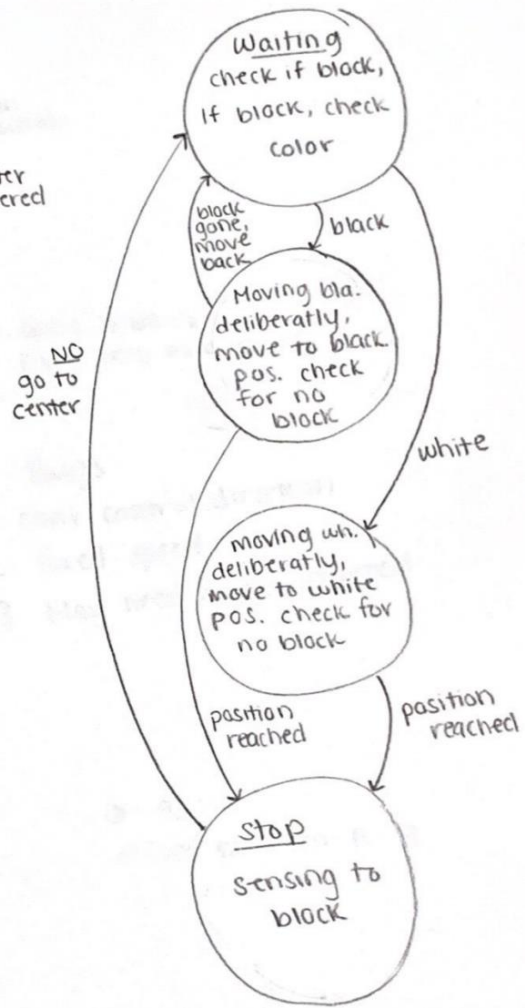 Waiting
check if block,
If block, check
color
ered
block
gone,
move
back
black
Moving bla.
deliberatly,
move to black
pos. check
for no
block
NO
go to
center
white
moving wh.
deliberatly,
move to white
pos. check for
no block
position
reached
position
reached
Stop
sensing to
block